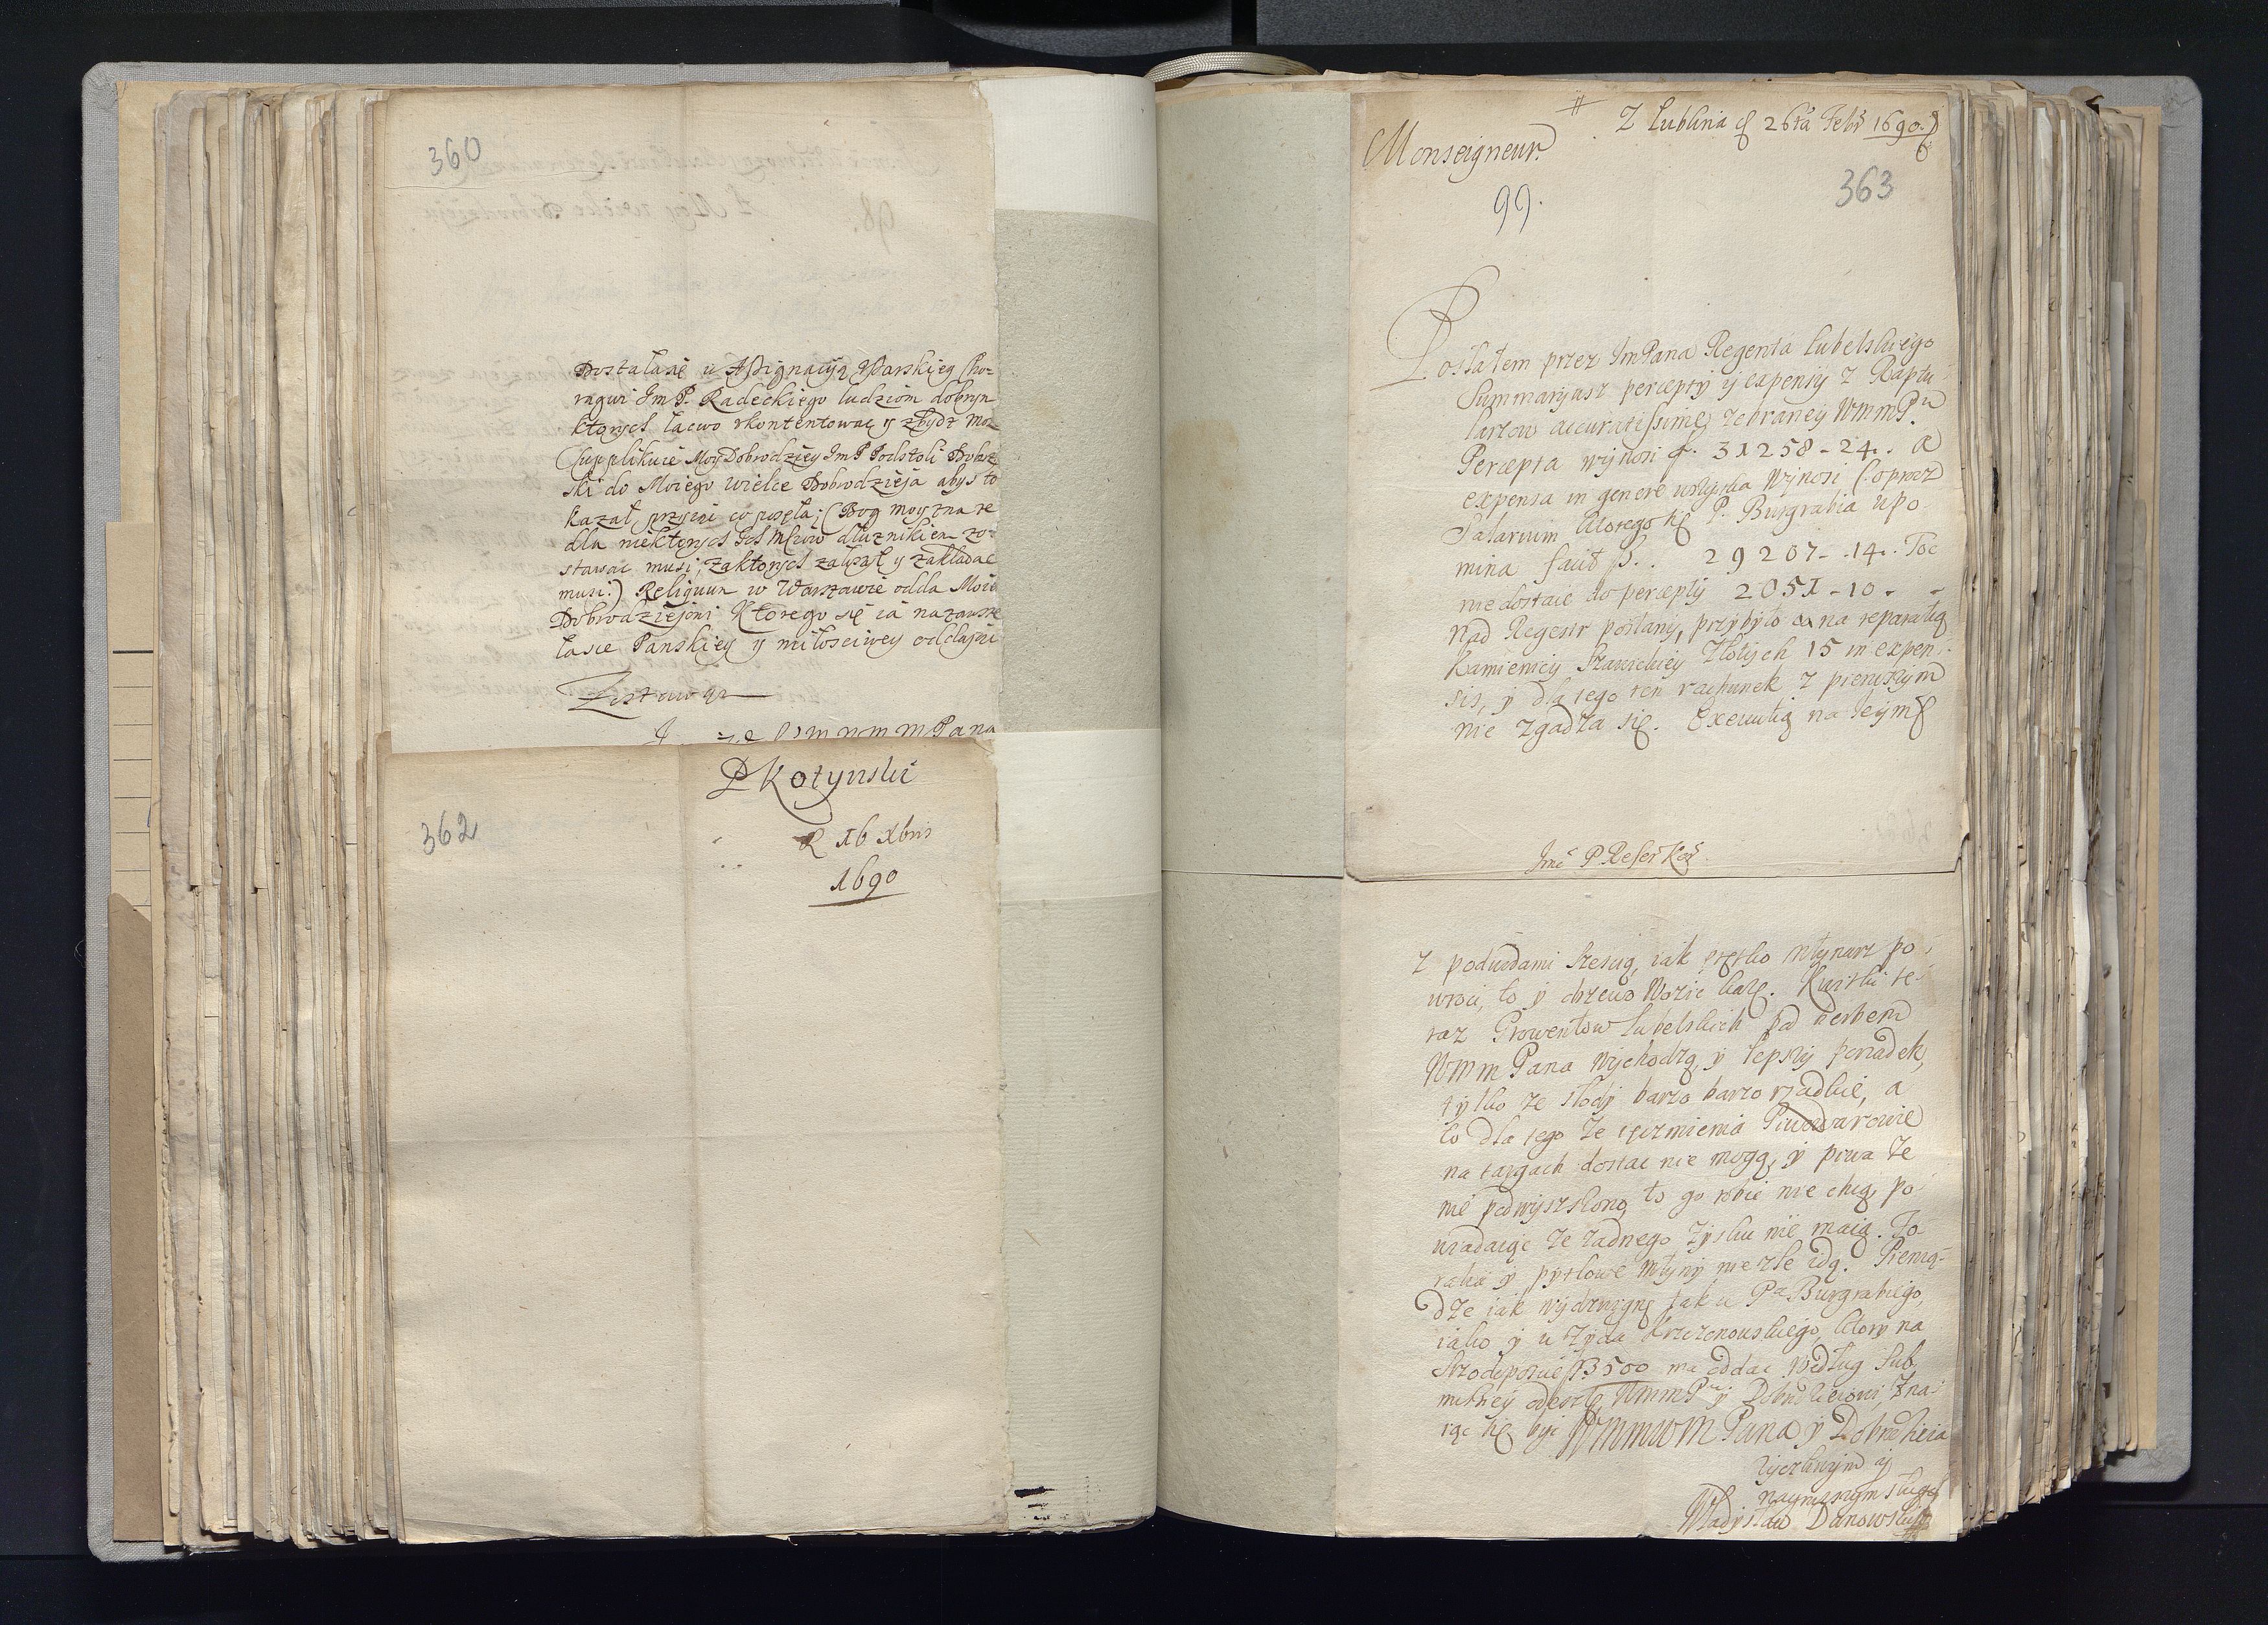 360
Dostała się u Assignacyą Warskiey Cho-
rągwi Jm P. Radeckiego ludziom dobrym
ktorych łacwo skontentować y zbydz moz
supplikuie Moy Dobrodziey Jm P Podstoli
ski do Moiego wielce Dobrodzieja abys to
kazał, (Bog moy zna ze
dla niektorych Ich Mciow dłuznikiem zo-
stawać musi, za ktorych załozył y zakładac
musi:) Reliquum w Warszawie odda Moie
Dobrodziejowi Ktorego się ia na zawsze
łasce Panskiey y miłosciwey oddaję
Zostawaąc
WM mm m Pana
362
P Kotynski
R 16 Xbris
1690
Z Lublina d 26ta Febr 1690.
Monseigneur.
99.
363
Posłałem przez Jm Pana Regenta Lubelskiego
Summaryusz percepty y expensy z Raptu
larzow accuratissime zebraney WmmPu.
Percepta wynosi f. 31258 - 24. a
expensa in genere wszystka wynosi (oprocz
Salarium ktorego się P. Burgrabia upo
mina facit f. . 29207 - 14. Toc
nie dostaie do percepty 2051 - 10 -
Nad Regestr posłany, przybyło na reparatią
Kamienicy Złotych 15 in expen
sis, y dla tego ten rachunek z pierwszym
nie zgadza się. Executią na Seym
Jmć P Refer Kor
z podwodami sześcią, iak prętko młynarz po
wroci, to y drzewo wozić każę. Kwitki te-
raz Prowentow Lubelskich pod herbem
WMm Pana wychodzą, y lepszy porządek,
tylko że słody barzo barzo rzadkie, a
to dla tego że ięczmienia Piwowarowie
na targach dostac nie mogą, y piwa że
nie podwyszszono, to go robić nie chcą, po-
wiadaiąc że żadnego zysku nie maią. To
y pytlowe młyny nie źle idą. Pienią-
dze iak wydzwignę tak u Pa Burgrabiego,
iako y u Żyda Krzczonowskiego, ktory na
Srzodoposcie f 3500 ma oddac według sub
missiey odeszlę WmmPu y Dobrodzieiowi, zna-
iąc się byc WMmwM Pana y Dobrodzieia
życzliwym y
nayniższym sługą
Władysław Danowski